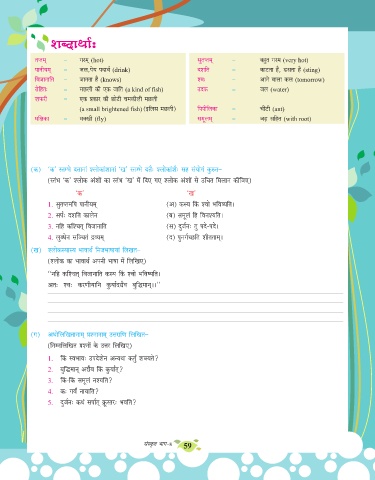 शब्दार्थाः
तप्तम् – गरम् (hot)
पानीयम् – जल, पेय पदार्थ (drink)
विजानाति – जानता हैं (knows)
रोहितः – मछली की एक जाति (a kind of fish)
शफरी – एक प्रकार की छोटी चमकीली मछली
(a small brightened fish) (हिल्सा मछली)
मक्षिका – मक्खी (fly)
सुतप्तम् – बहुत गरम् (very hot)
दशति – काटता हैं, डसता हैं (sting)
श्वः – आने वाला कल (tomorrow)
उदक – जल (water)
पिपीलिका – चींटी (ant)
समूलम् – जड़ सहित (with root)
(क) 'क' स्तम्भे दत्तानां श्लोकांशानां 'ख' स्तम्भे दत्तैः श्लोकांशैः सह संयोगं कुरुत–
(स्तंभ 'क' श्लोक अंशों का स्तंभ 'ख' में दिए गए श्लोक अंशों से उचित मिलान कीजिए)
'क' 'ख'
1. सुतप्तमपि पानीयम् (अ) कस्य किं श्वो भविष्यति।
2. सर्पः दशति कालेन (ब) समूलं हि विनश्यति।
3. नहि कश्चित् विजानाति (स) दुर्जनः तु पदे-पदे।
4. लुब्धेन सञ्चितं द्रव्यम् (द) पुनर्गच्छति शीतताम्।
(ख) श्लोकस्यास्य भावार्थं निजभाषायां लिखत–
(श्लोक का भावार्थ अपनी भाषा में लिखिए)
"नहि कश्चित् विजानाति कस्य किं श्वो भविष्यति।
अतः श्वः करणीयानि कुर्यादद्यैव बुद्धिमान्।।"
(ग) अधोलिखितानाम् प्रश्नानाम् उत्तराणि लिखत–
(निम्नलिखित प्रश्नों के उत्तर लिखिए)
1. किं स्वभावः उपदेशेन अन्यथा कर्तुं शक्यते?
2. बुद्धिमान् अद्यैव किं कुर्यात्?
3. किं-किं समूलं नश्यति?
4. कः गर्वं नायाति?
5. दुर्जनः कथं सर्पात् क्रूरतरः भवति?
संस्कृत भाग-6
59